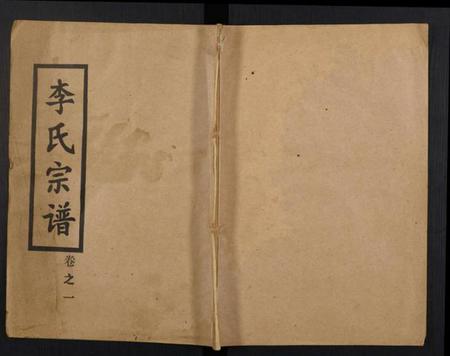 李氏宗谱
卷之一